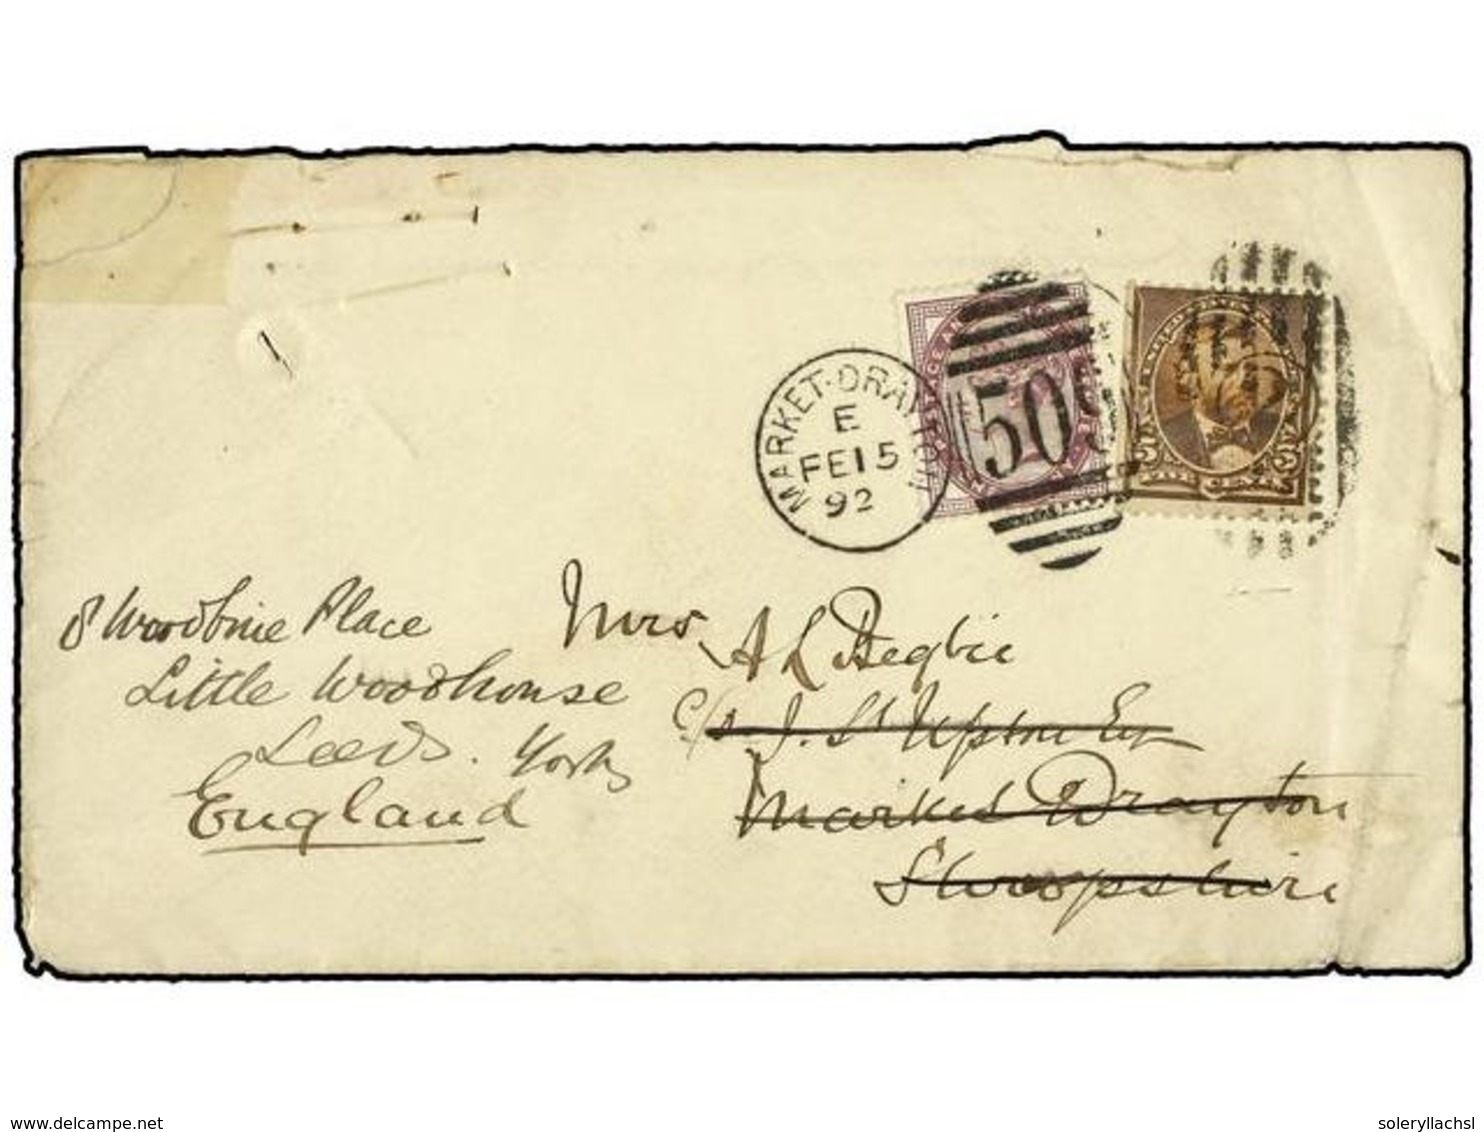 MARKET·DRAYTON
E
FE15
92
50
8 Woodbine Place
Little Woodhouse
Leeds. Yorks
England
Mrs A L Begbie
c/o J. St Upton Esq
Market Drayton
Shropshire
delcampe.net
soleryllachsl